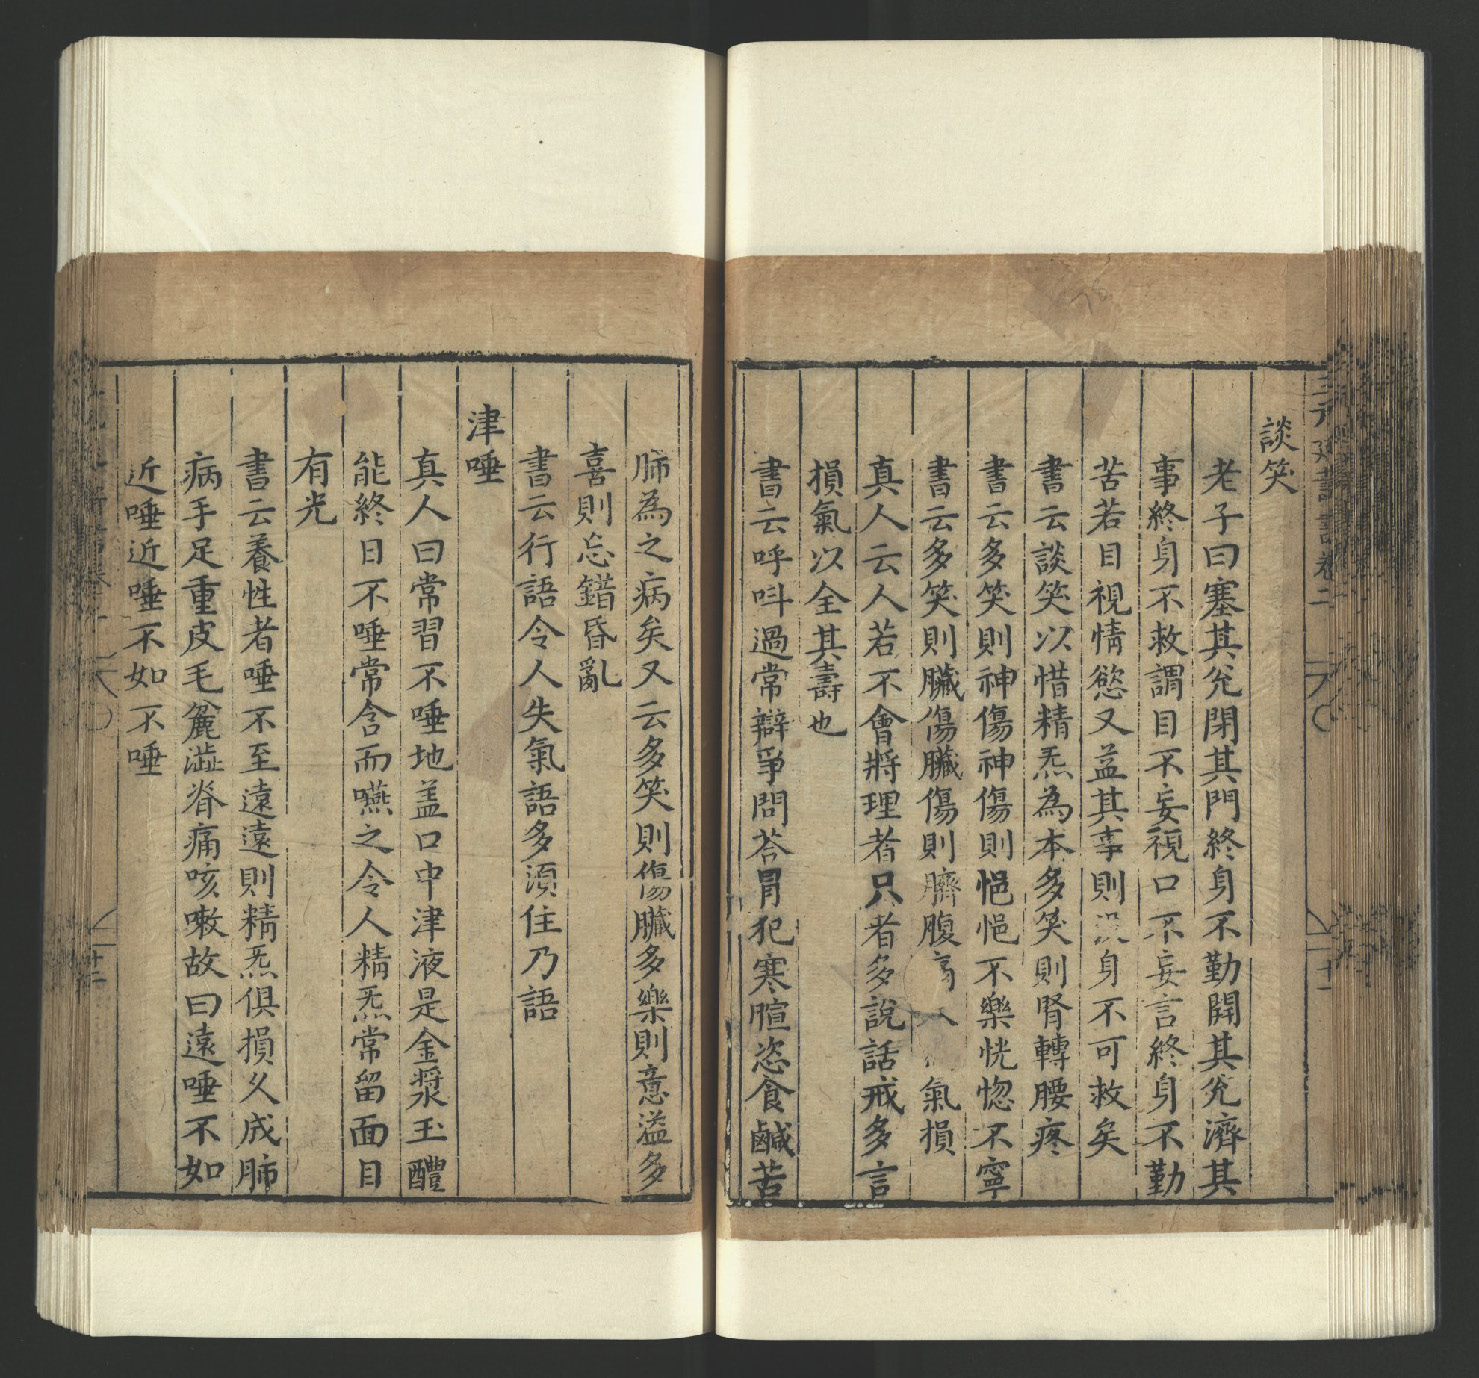 談笑
老子曰塞其兌閉其門終身不勤開其兌濟其
事終身不救謂目不妄視口不妄言終身不勤
苦若目視情慾又益其事則沒身不可救矣
書云談笑以惜精炁為本多笑則腎轉腰疼
書云多笑則神傷神傷則悒悒不樂恍惚不寧
書云多笑則臟傷臟傷則臍腹氣損
真人云人若不會將理者只者多說話戒多言
損氣以全其壽也
書云呼呌過常辯爭問荅冐犯寒暄恣食鹹苦
肺為之病矣又云多笑則傷臟多樂則意溢多
喜則忘錯昏亂
書云行語令人失氣語多湏住乃語
津唾
真人曰常習不唾地盖口中津液是金漿玉醴
能終日不唾常含而嚥之令人精炁常留面目
有光
書云養性者唾不至遠遠則精炁俱損久成肺
病手足重皮毛麄澁脊痛咳嗽故曰遠唾不如
近唾近唾不如不唾